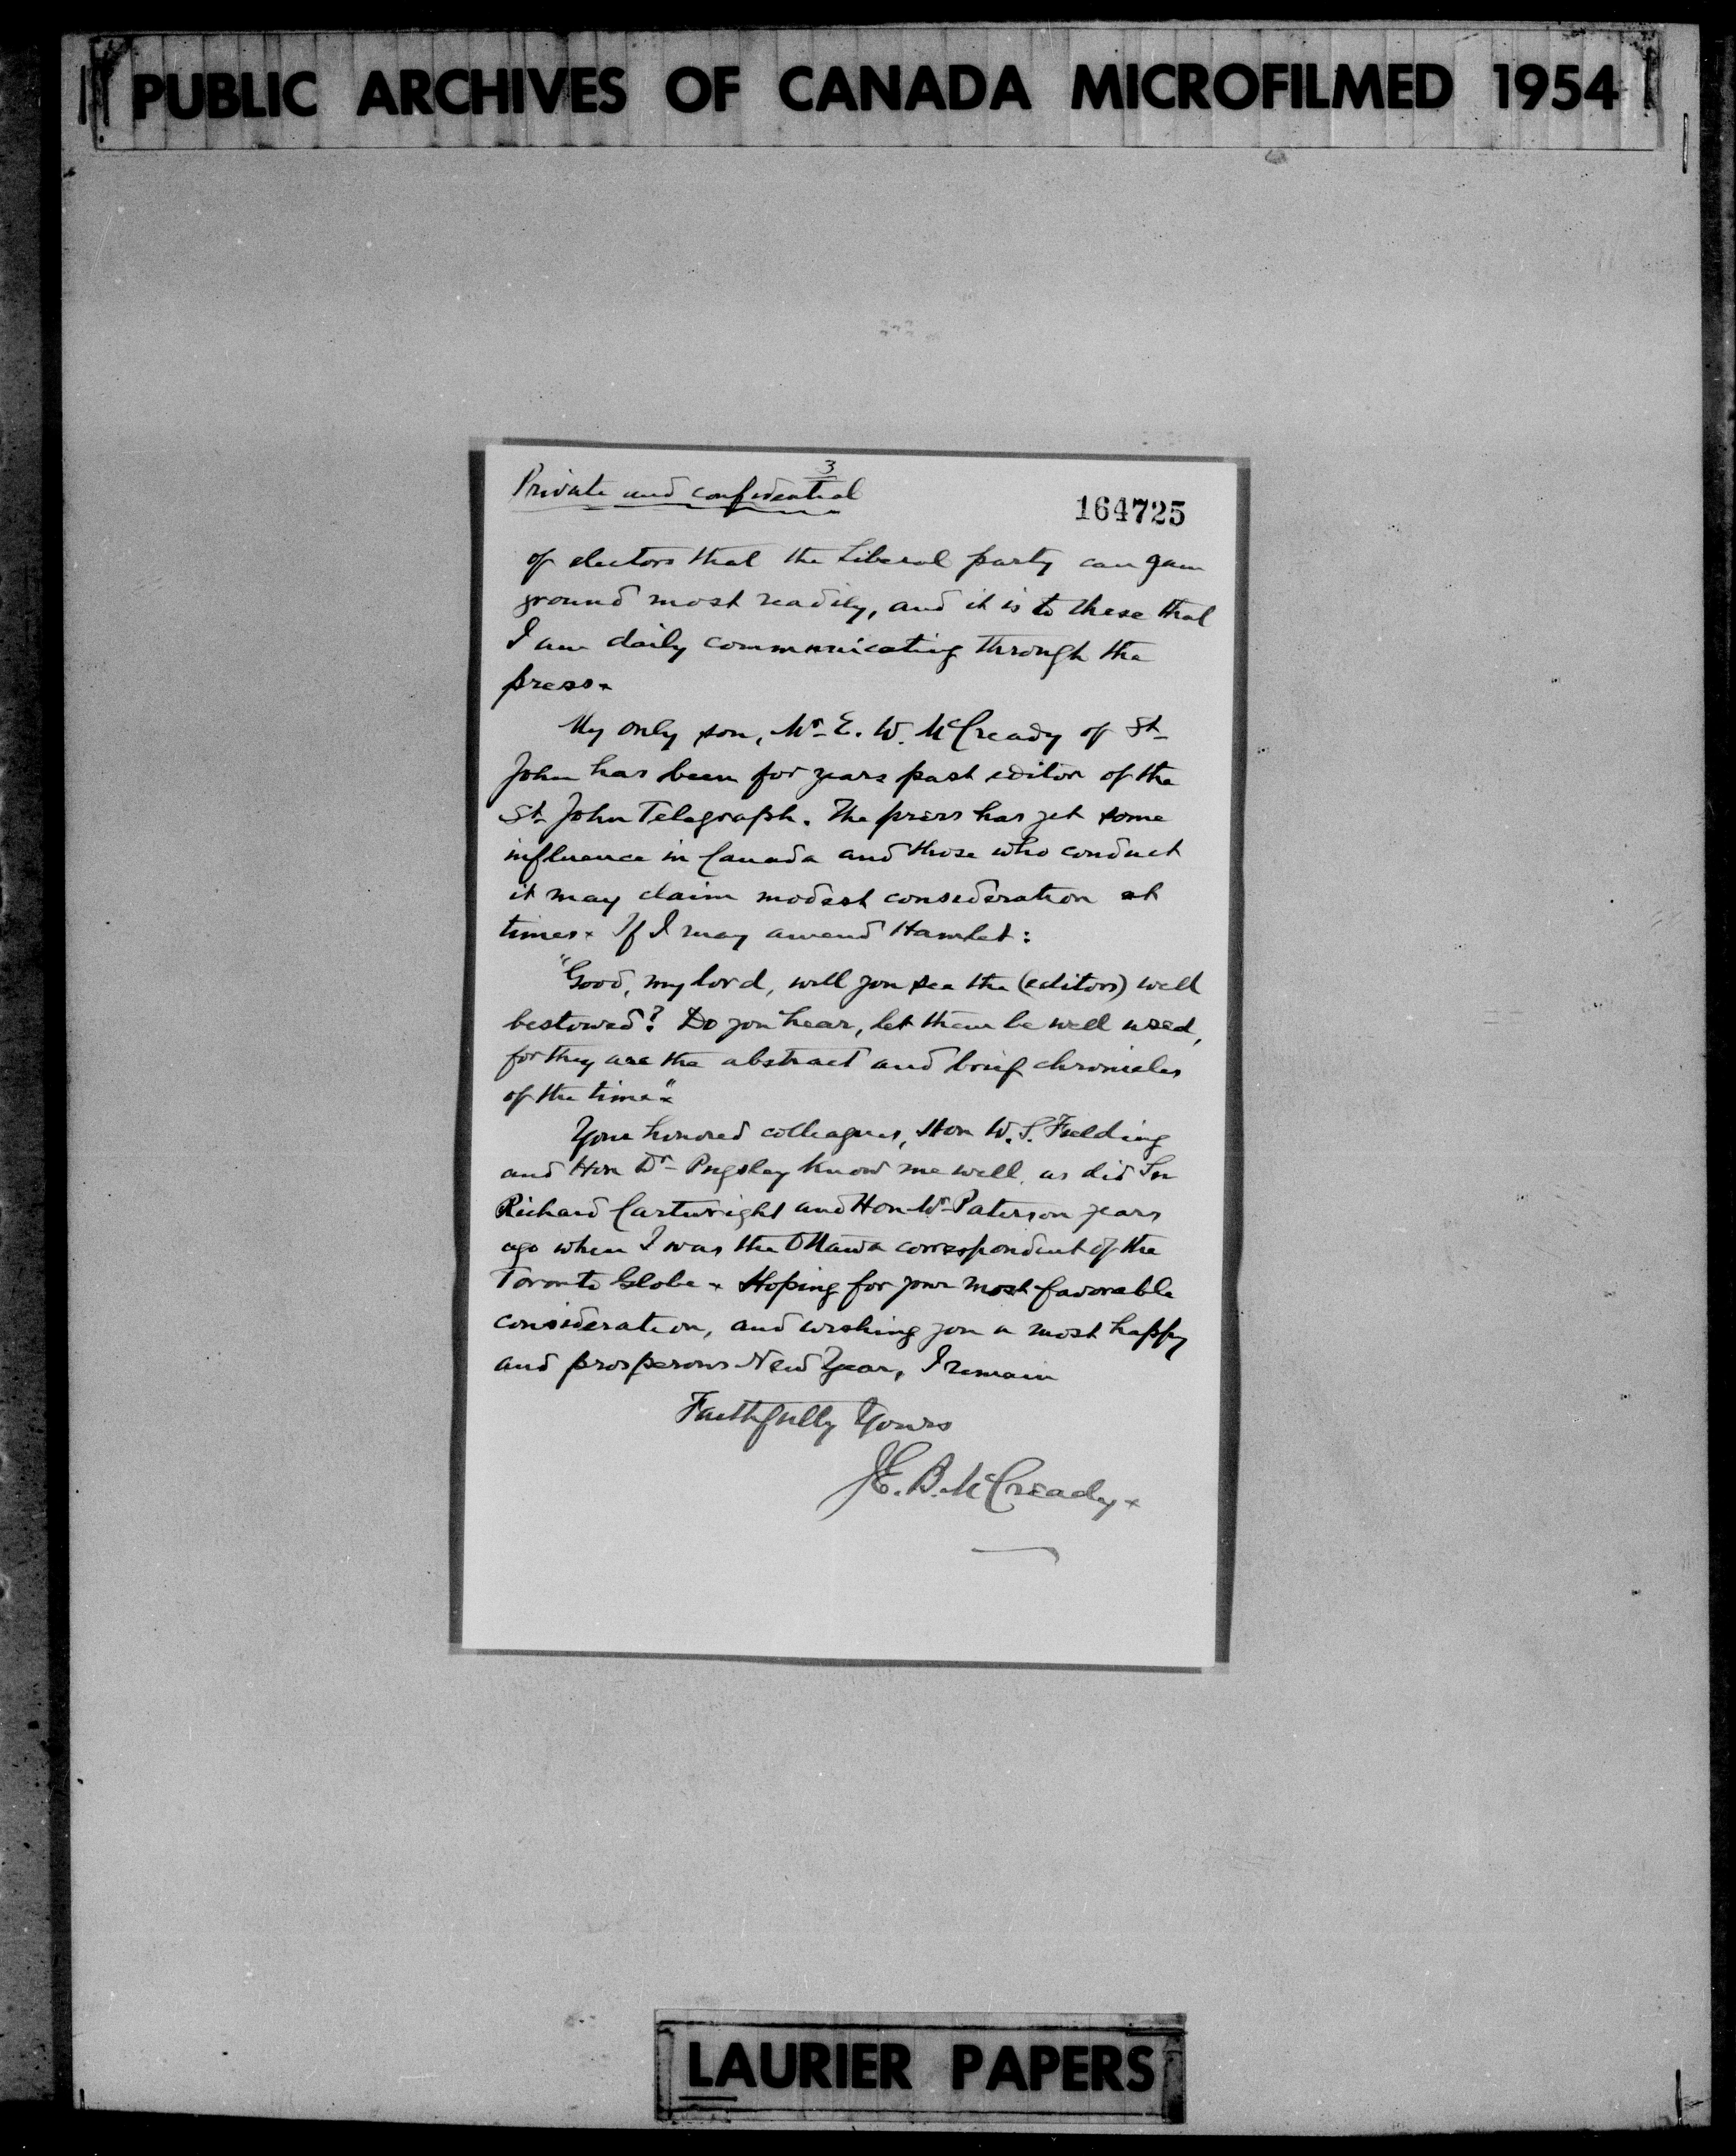 PUBLIC ARCHIVES OF CANADA MICROFILMED 1954
3
Private and confidential
164725
of electors that the Liberal party can gain
ground most readily, and it is to these that
I am daily communicating through the
press.
My only son, Mr. E. W. McCready of St.
John has been for years past editor of the
St. John Telegraph. The press has yet some
influence in Canada and those who conduct
it may claim modest consideration at
times. If I may amend Hamlet:
"Good, my lord, will you see the (editors) well
bestowed? Do you hear, let them be well used,
for they are the abstract and brief chronicles
of the time".
Your honored colleagues, Hon W. S. Fielding
and Hon Dr. Pugsley know me well, as did Sir
Richard Cartwright and Hon Wm Paterson years
ago when I was the Ottawa correspondent of the
Toronto Globe. Hoping for your most favorable
consideration, and wishing you a most happy
and prosperous New Year, I remain
Faithfully Yours
J.E.B. McCready.
LAURIER PAPERS